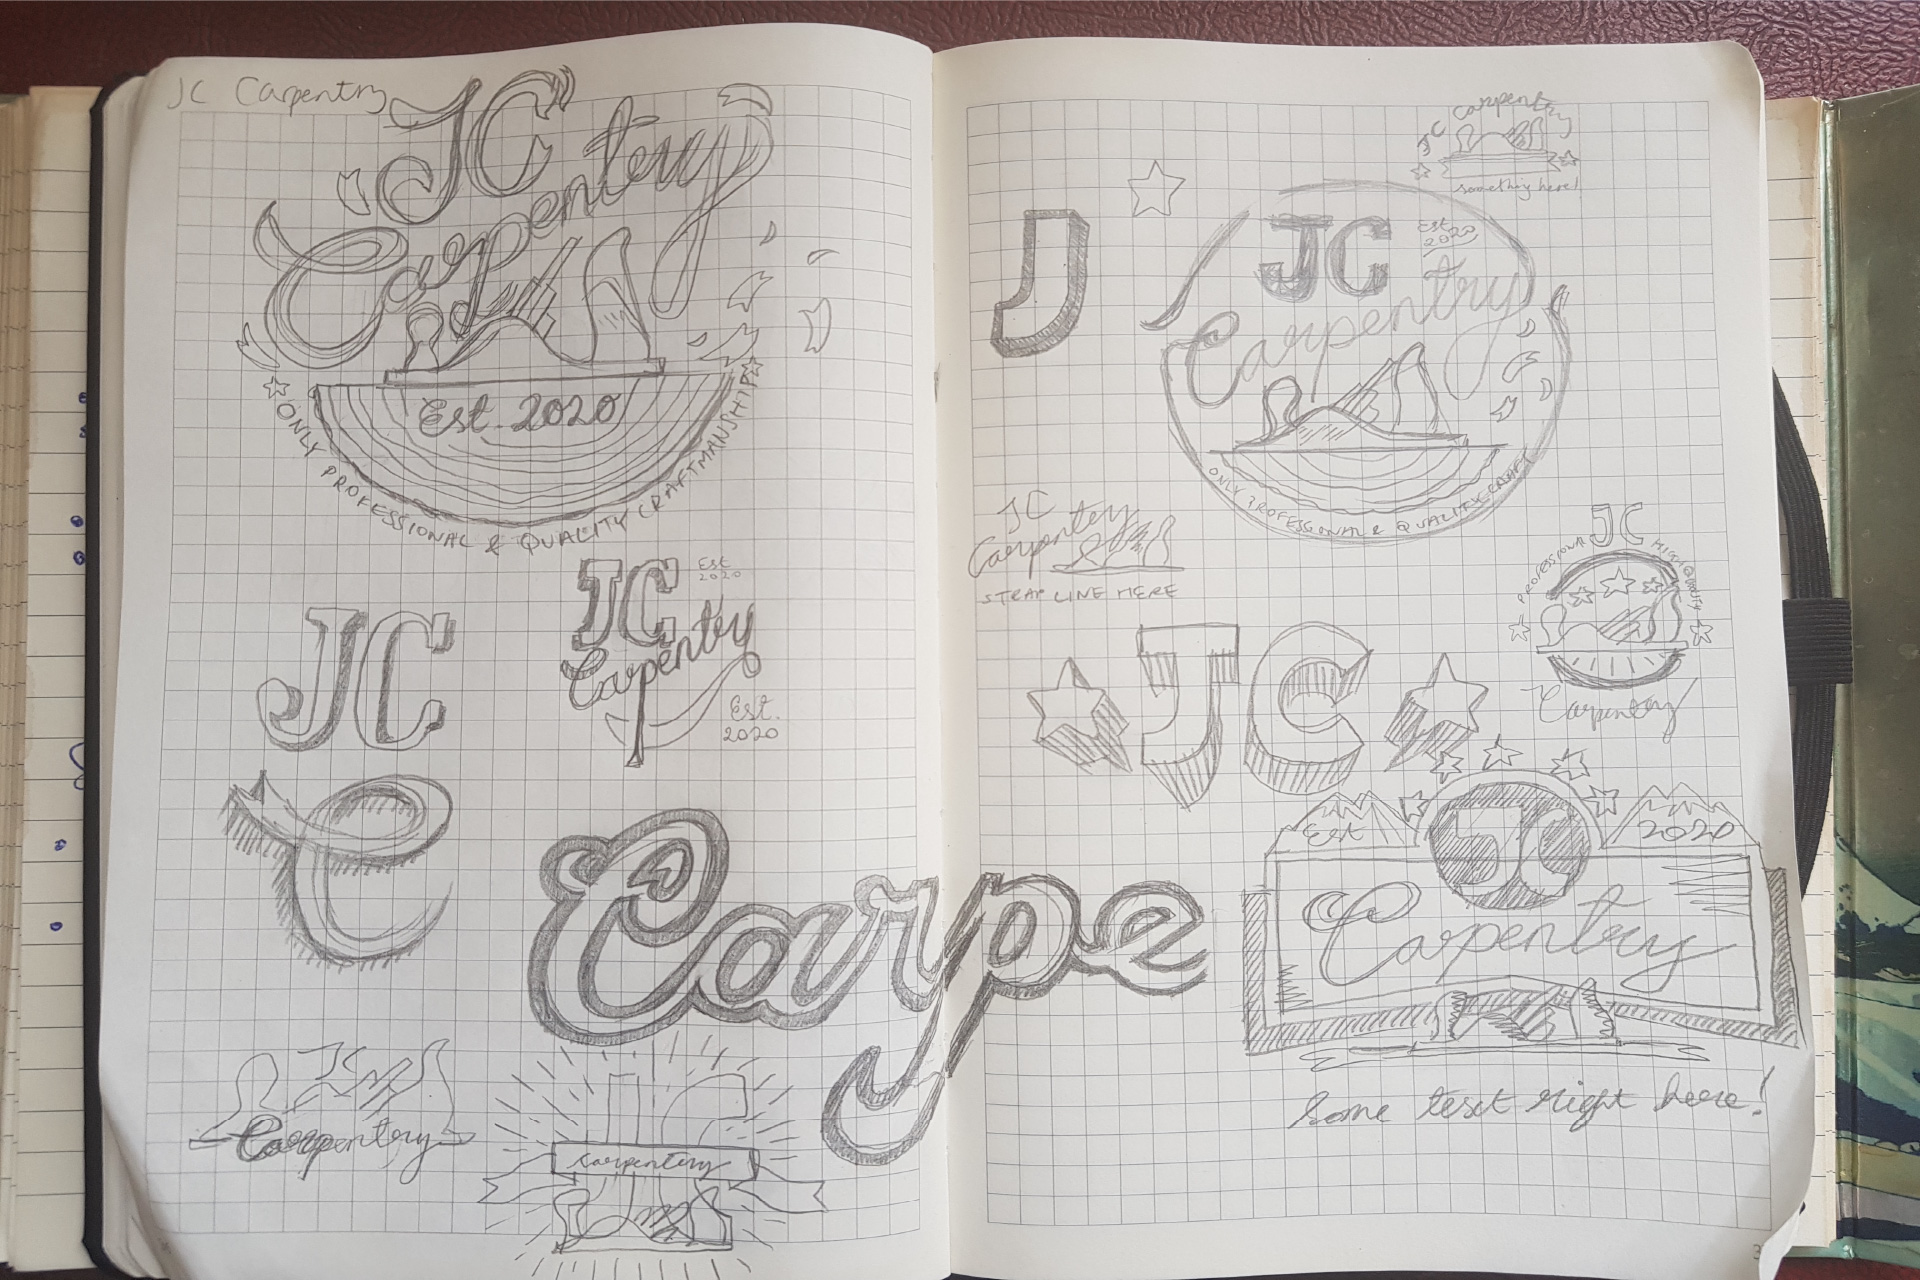 JC Carpentry
JC
Carpentry
Est. 2020
ONLY PROFESSIONAL & QUALITY CRAFTMANSHIP
JC
Est
2020
Carpentry
Est.
2020
JC
C
Carpe
JC
Carpentry
JC
carpentry
JC carpentry
something here!
J
JC
Est
2020
Carpentry
ONLY PROFESSIONAL & QUALITY
JC
Carpentry
STRAP LINE HERE
JC
PROFESSIONAL
Carpentry
JC
Est
JC
2020
Carpentry
Some text right here!
3